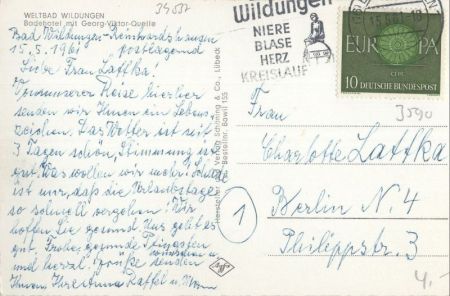 39537
WELTBAD WILDUNGEN
Badehotel mit Georg-Viktor-Quelle
Bad Wildungen-Reinhardshausen
15.5.1961 postlagernd
Liebe Frau Laffka!
Von unserer Reise hierher
senden wir Ihnen ein Lebens-
zeichen. Das Wetter ist seit
3 Tagen schön, Stimmung ist
gut. Was wollen wir mehr. Schade
ist nur, daß die Urlaubstage
so schnell vergehen! Wir
hoffen Sie gesund. Uns geht es
gut. Frohe, gesunde Pfingsten wünschen
und herzl. Grüße senden
Ihnen Ihre Anna Raffel u. Mann
Verlag Schöning & Co., Lübeck
Bestellnr.
Agfa
Wildungen
NIERE
BLASE
HERZ
KREISLAUF
15.5.61-18
EUROPA
CEPT
10 DEUTSCHE BUNDESPOST
3590
Frau
Charlotte Laffka
1
Berlin N. 4
Philippstr. 3
4,-